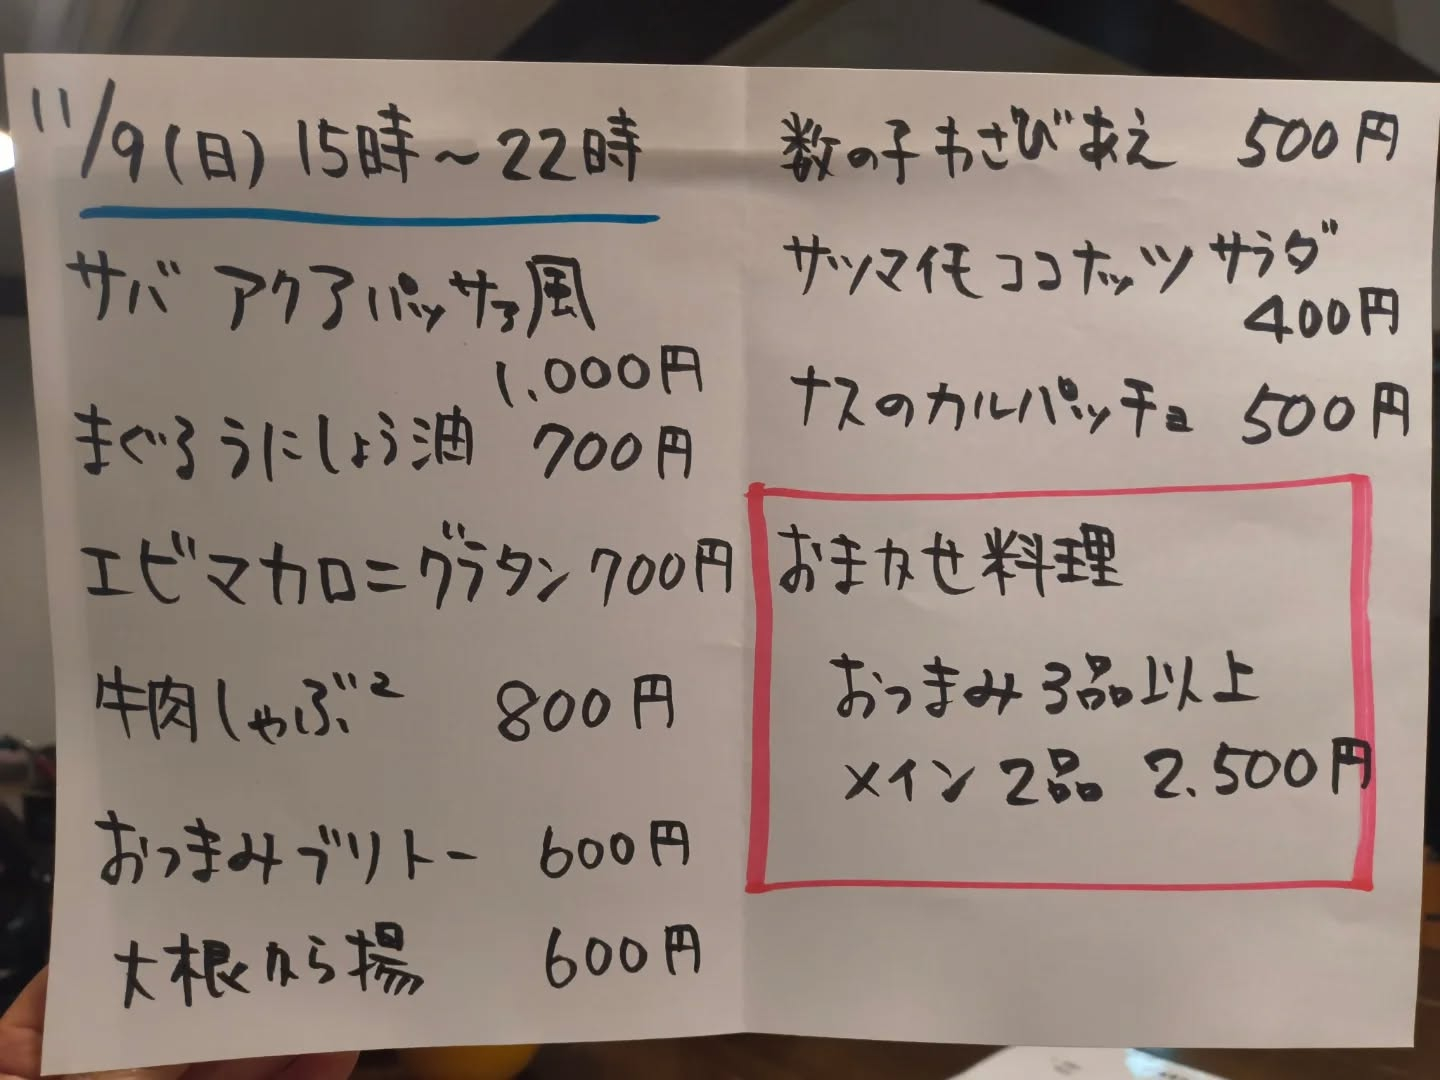 11/9(日) 15時～22時
サバ アクアパッツァ風
1.000円
まぐろうにしょう油 700円
エビマカロニグラタン 700円
牛肉しゃぶ² 800円
おつまみブリトー 600円
大根から揚 600円
数の子わさびあえ 500円
サツマイモココナッツサラダ
400円
ナスのカルパッチョ 500円
おまかせ料理
おつまみ3品以上
メイン2品 2.500円